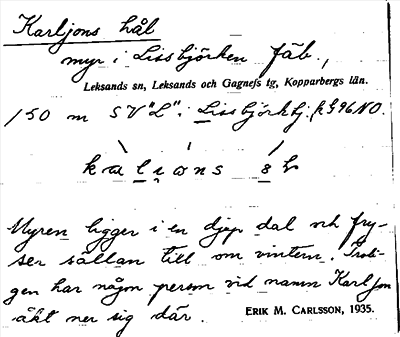 Karljons hål
myr i Lissbjörken fäb.,
Leksands sn, Leksands och Gagnefs tg, Kopparbergs län.
150 m SV "L" i Lissbjörkbj. k G96 NO.
kalions hl
Myren ligger i en djup dal och fry-
ser sällan till om vintern. Troli-
gen har någon person vid namn Karl Jon
åkt ner sig där.
ERIK M. CARLSSON, 1935.